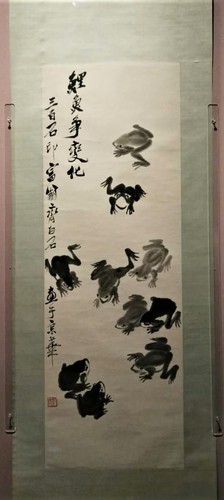 鯉魚爭變化
三百石印富翁齊白石畫于京華